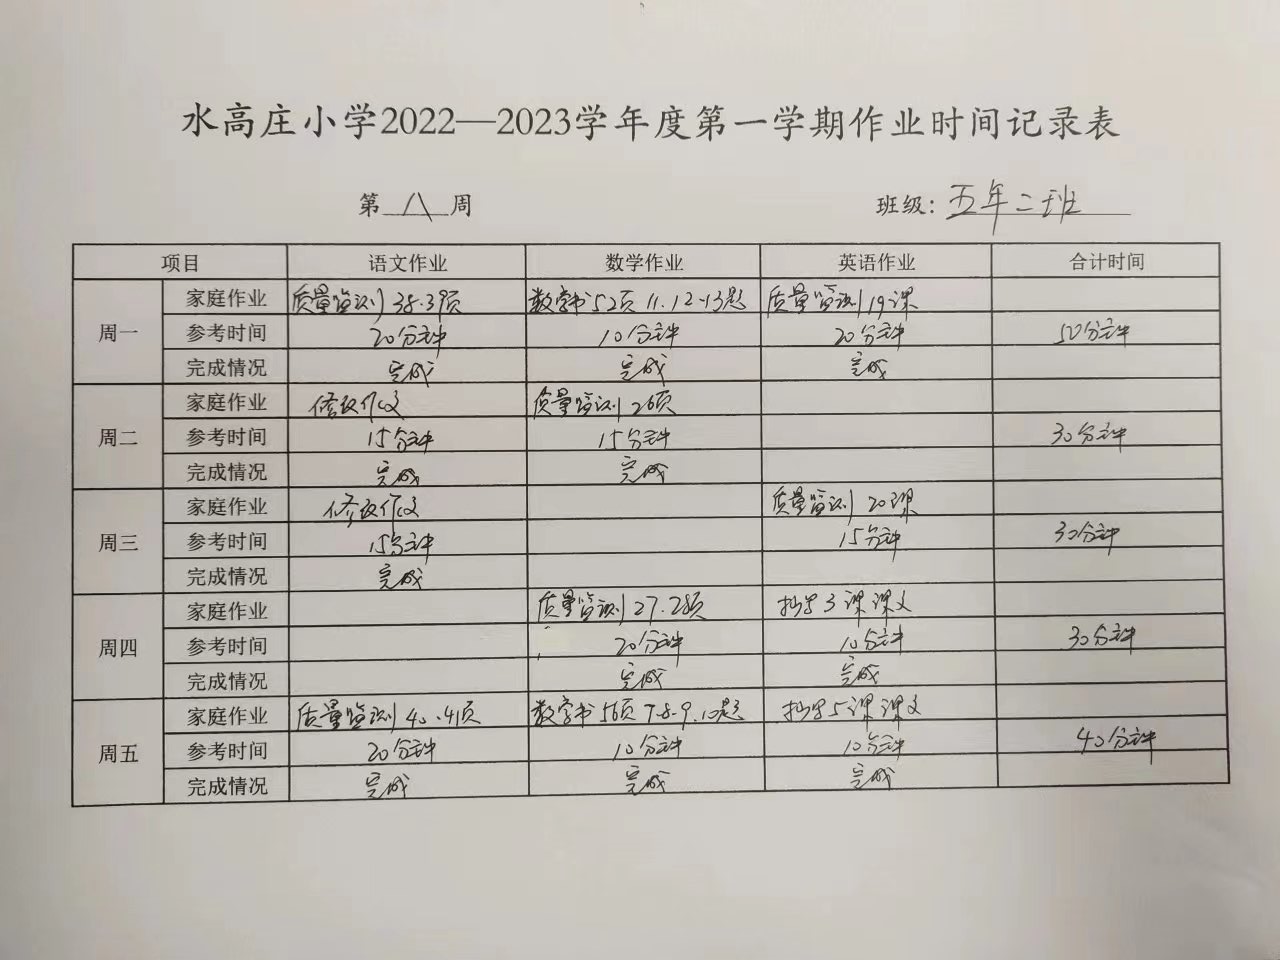 水高庄小学2022—2023学年度第一学期作业时间记录表
第八周 班级：五年二班
项目 语文作业 数学作业 英语作业 合计时间
周一
家庭作业 质量监测38.39页 数学书52页11.12.13题 质量监测19课
参考时间 20分钟 10分钟 20分钟 50分钟
完成情况 完成 完成 完成
周二
家庭作业 修改作文 质量监测26页
参考时间 15分钟 15分钟 30分钟
完成情况 完成 完成
周三
家庭作业 修改作文 质量监测20课
参考时间 15分钟 15分钟 30分钟
完成情况 完成
周四
家庭作业 质量监测27.28页 抄写3课课文
参考时间 20分钟 10分钟 30分钟
完成情况 完成 完成
周五
家庭作业 质量监测40.41页 数学书56页7.8.9.10题 抄写5课课文
参考时间 20分钟 10分钟 10分钟 40分钟
完成情况 完成 完成 完成